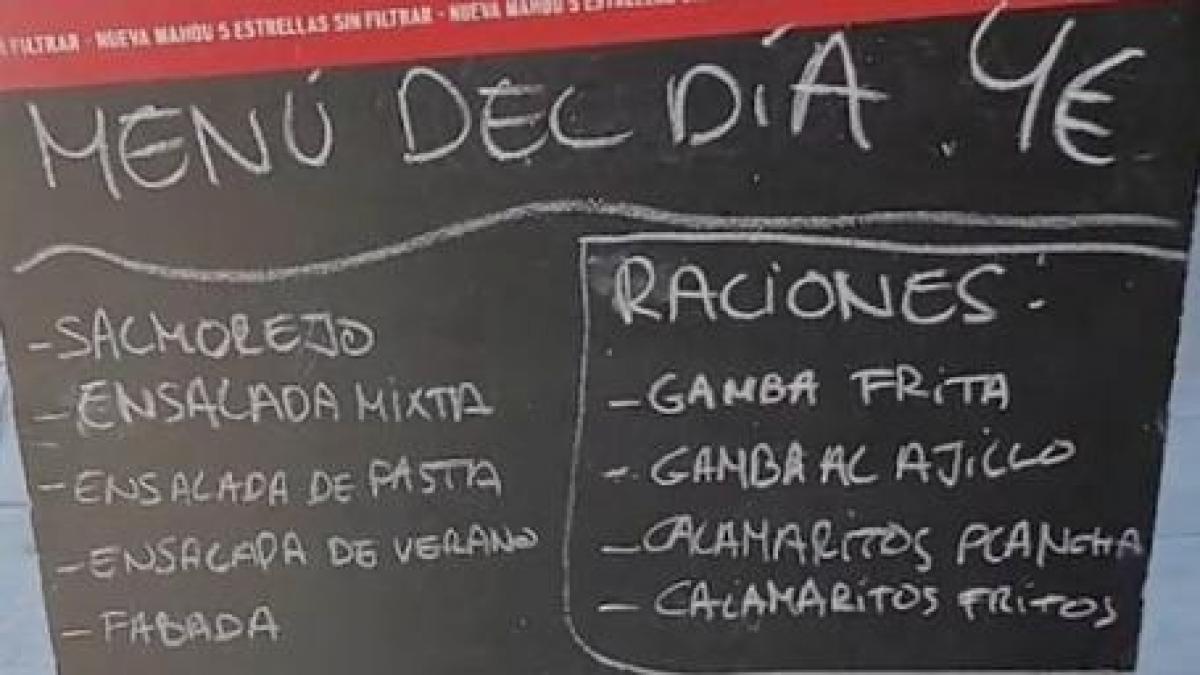 FILTRAR - NUEVA MAHOU 5 ESTRELLAS SIN FILTRAR - NUEVA MAHOU 5 ESTRELLAS
MENÚ DEL DÍA. 4€
- SALMOREJO
- ENSALADA MIXTA
- ENSALADA DE PASTA
- ENSALADA DE VERANO
- FABADA
RACIONES:
- GAMBA FRITA
- GAMBA AL AJILLO
- CALAMARITOS PLANCHA
- CALAMARITOS FRITOS